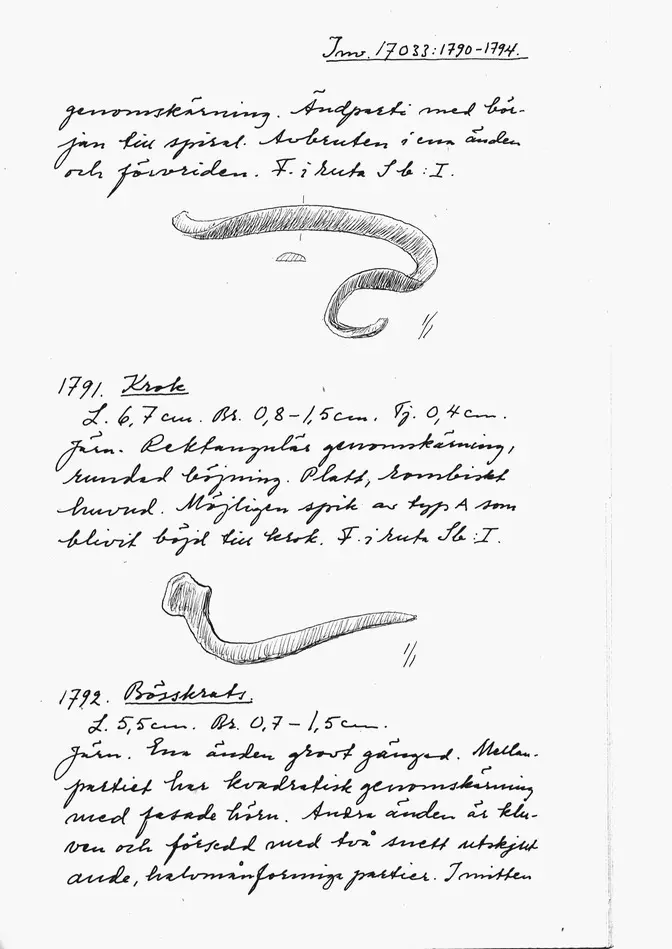 Inv. 17033:1790-1794.
genomskärning. Ändparti med bör-
jan till spiral. Avbruten i ena änden
och förvriden. F. i ruta Sb:I.
1/1
1791. Krok
L. 6,7 cm. Br. 0,8-1,5 cm. Tj. 0,4 cm.
Järn. Rektangulär genomskärning,
rundad böjning. Platt, rombiskt
huvud. Möjligen spik av typ A som
blivit böjd till krok. F. i ruta Sb:I.
1/1
1792. Bösskrats.
L. 5,5 cm. Br. 0,7-1,5 cm.
Järn. Ena änden grovt gängad. Mellan-
partiet har kvadratisk genomskärning
med fasade hörn. Andra änden är klu-
ven och försedd med två snett utskjut
ande, halvmånformiga partier. I mitten